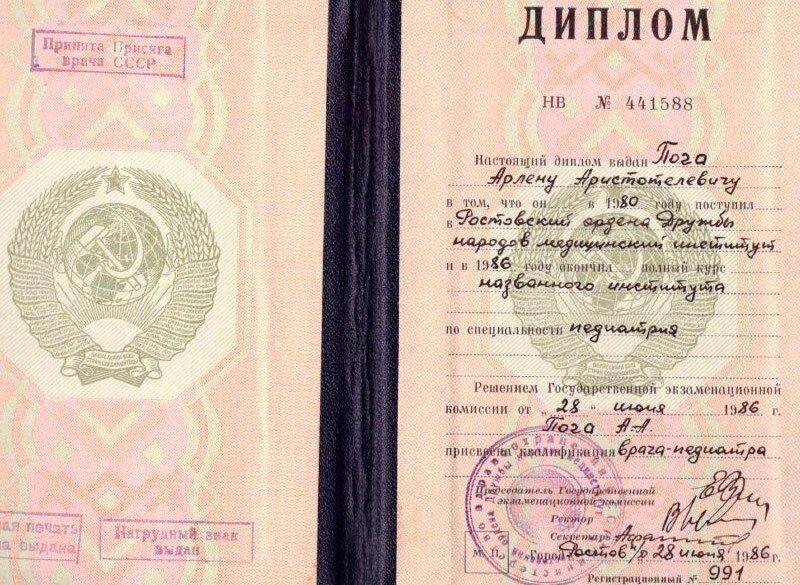 Принята Присяга
врача СССР
ая печать
а выдана
Нагрудный знак
выдан
ДИПЛОМ
НВ № 441588
Настоящий диплом выдан Пога
Арлену Аристотелевичу
в том, что он в 1980 году поступил
в Ростовский ордена Дружбы
народов медицинский институт
и в 1986 году окончил полный курс
названного института
по специальности педиатрия
Решением Государственной экзаменационной
комиссии от „28" июня 1986 г.
Пога А.А.
присвоена квалификация врача-педиатра
Председатель Государственной
экзаменационной комиссии
Ректор
Секретарь
М. П. Город Ростов н/Д 28 июня 1986 г.
Регистрационный № 991